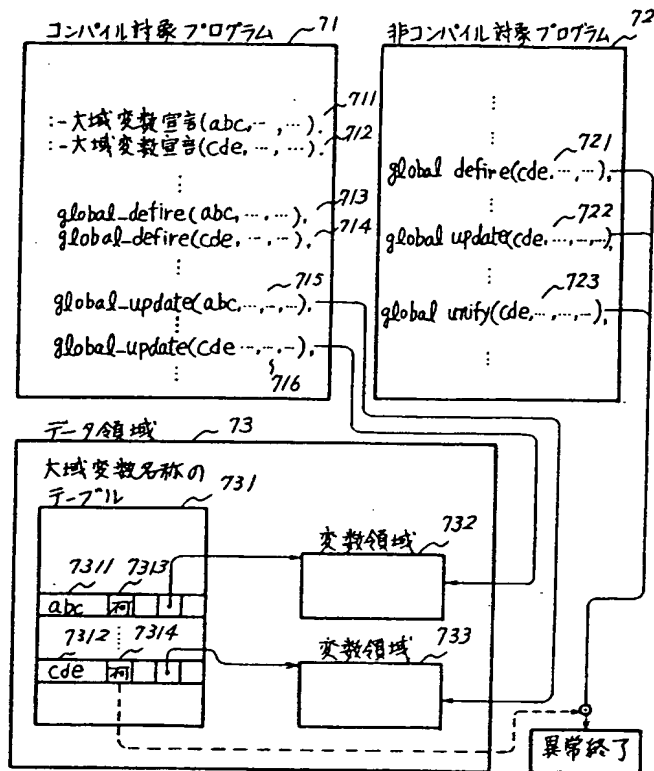 コンパイル対象プログラム 71
:-大域変数宣言(abc,…,…). 711
:-大域変数宣言(cde,…,…). 712
⋮
global_defire(abc,…,…), 713
global_defire(cde,…,…), 714
⋮
global_update(abc,…,…), 715
⋮
global_update(cde…,…,…), 716
⋮
非コンパイル対象プログラム 72
⋮
global defire(cde,…,…), 721
⋮
global update(cde,…,…,…), 722
⋮
global unify(cde,…,…,…), 723
⋮
データ領域 73
大域変数名称の
テーブル 731
7311 7313
abc 可
7312 7314
cde
変数領域 732
変数領域 733
異常終了